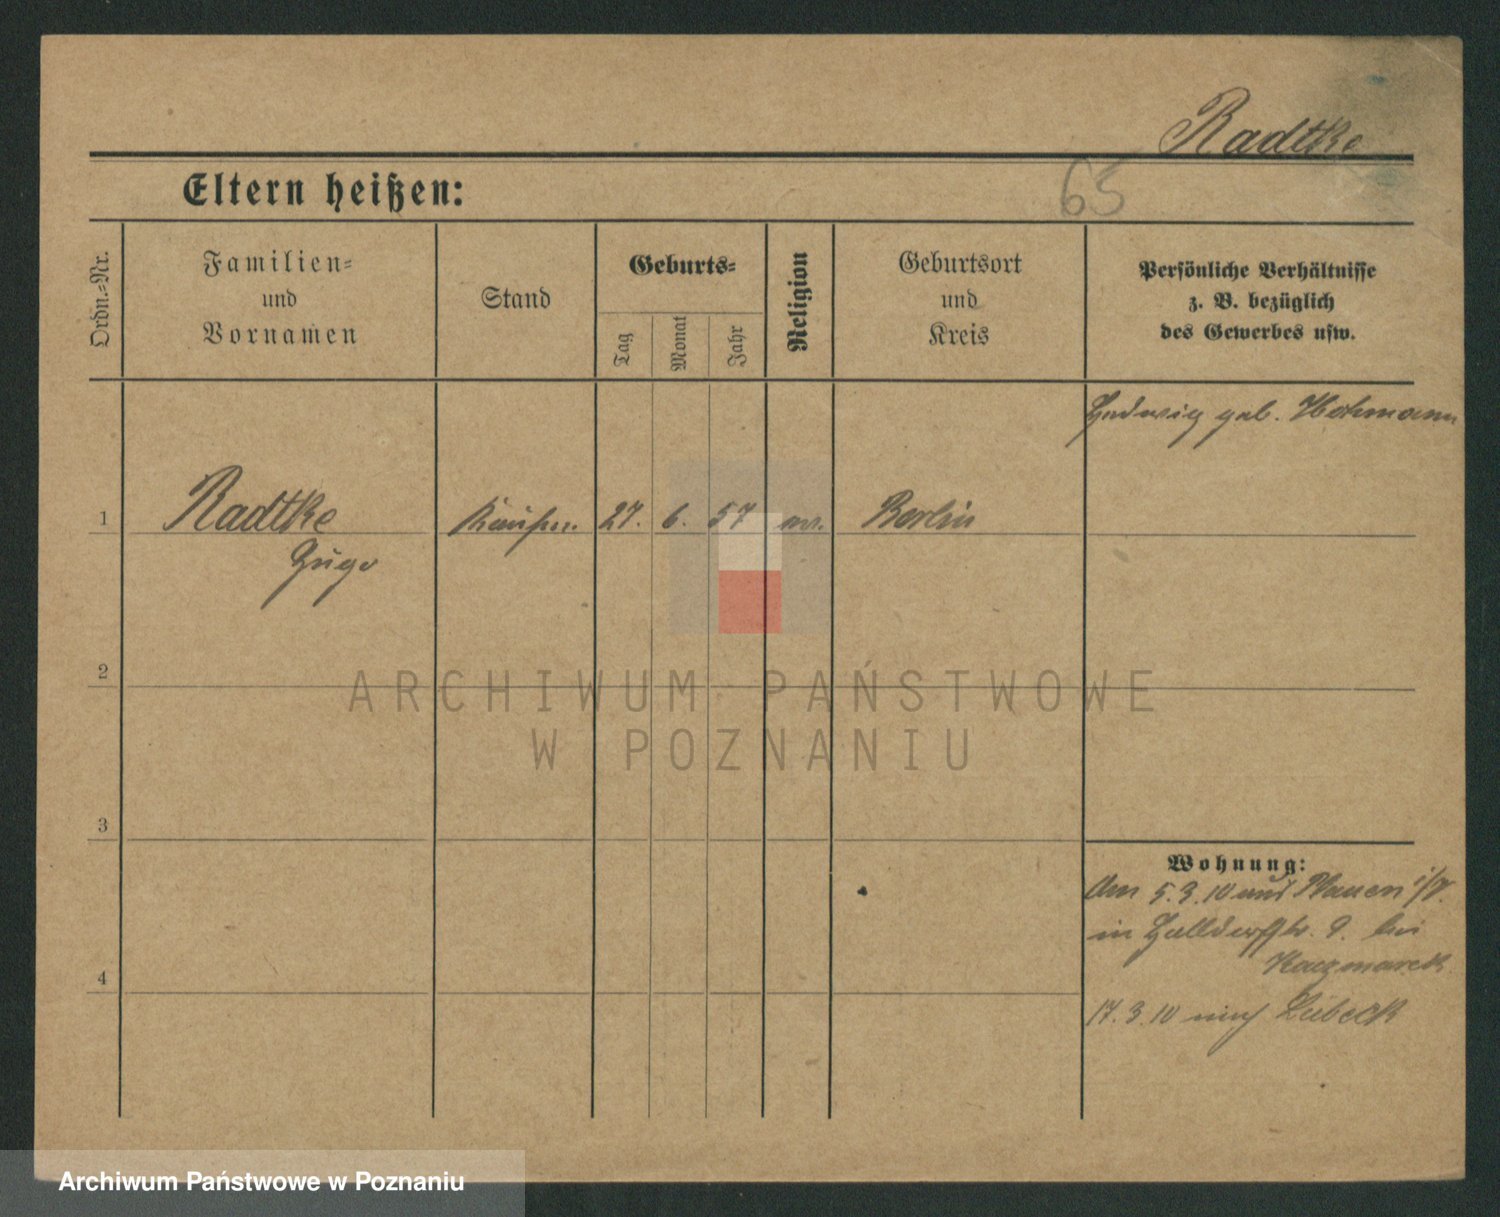 Radtke
65
Eltern heißen:
Ordn.-Nr.
Familien-
und
Vornamen
Stand
Geburts-
Tag
Monat
Jahr
Religion
Geburtsort
und
Kreis
Persönliche Verhältnisse
z. B. bezüglich
des Gewerbes usw.
Hedwig geb. Hohmann
1
Radtke
27. 6. 57
Berlin
Hugo
2
ARCHIWUM PAŃSTWOWE
W POZNANIU
3
Wohnung:
Am 5.3.10 aus Plauen i/V.
in 9. bei
Kaczmarek
4
17.3.10 nach Lübeck
Archiwum Państwowe w Poznaniu